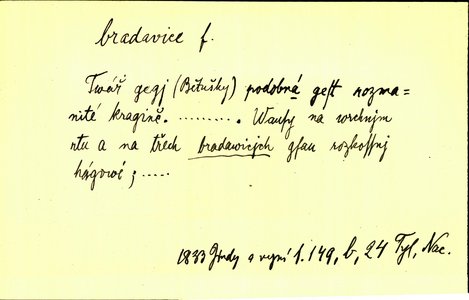 bradavice f.
Twář gegj (Bětušky) podobná gest rozma-
nité kragině. ......... Wausy na wrchnjm
rtu a na třech bradawicých gsau rozkossnj
hágowé; .....
1833 Jindy a nynj s. 149, b, 24 Tyl, Nác.